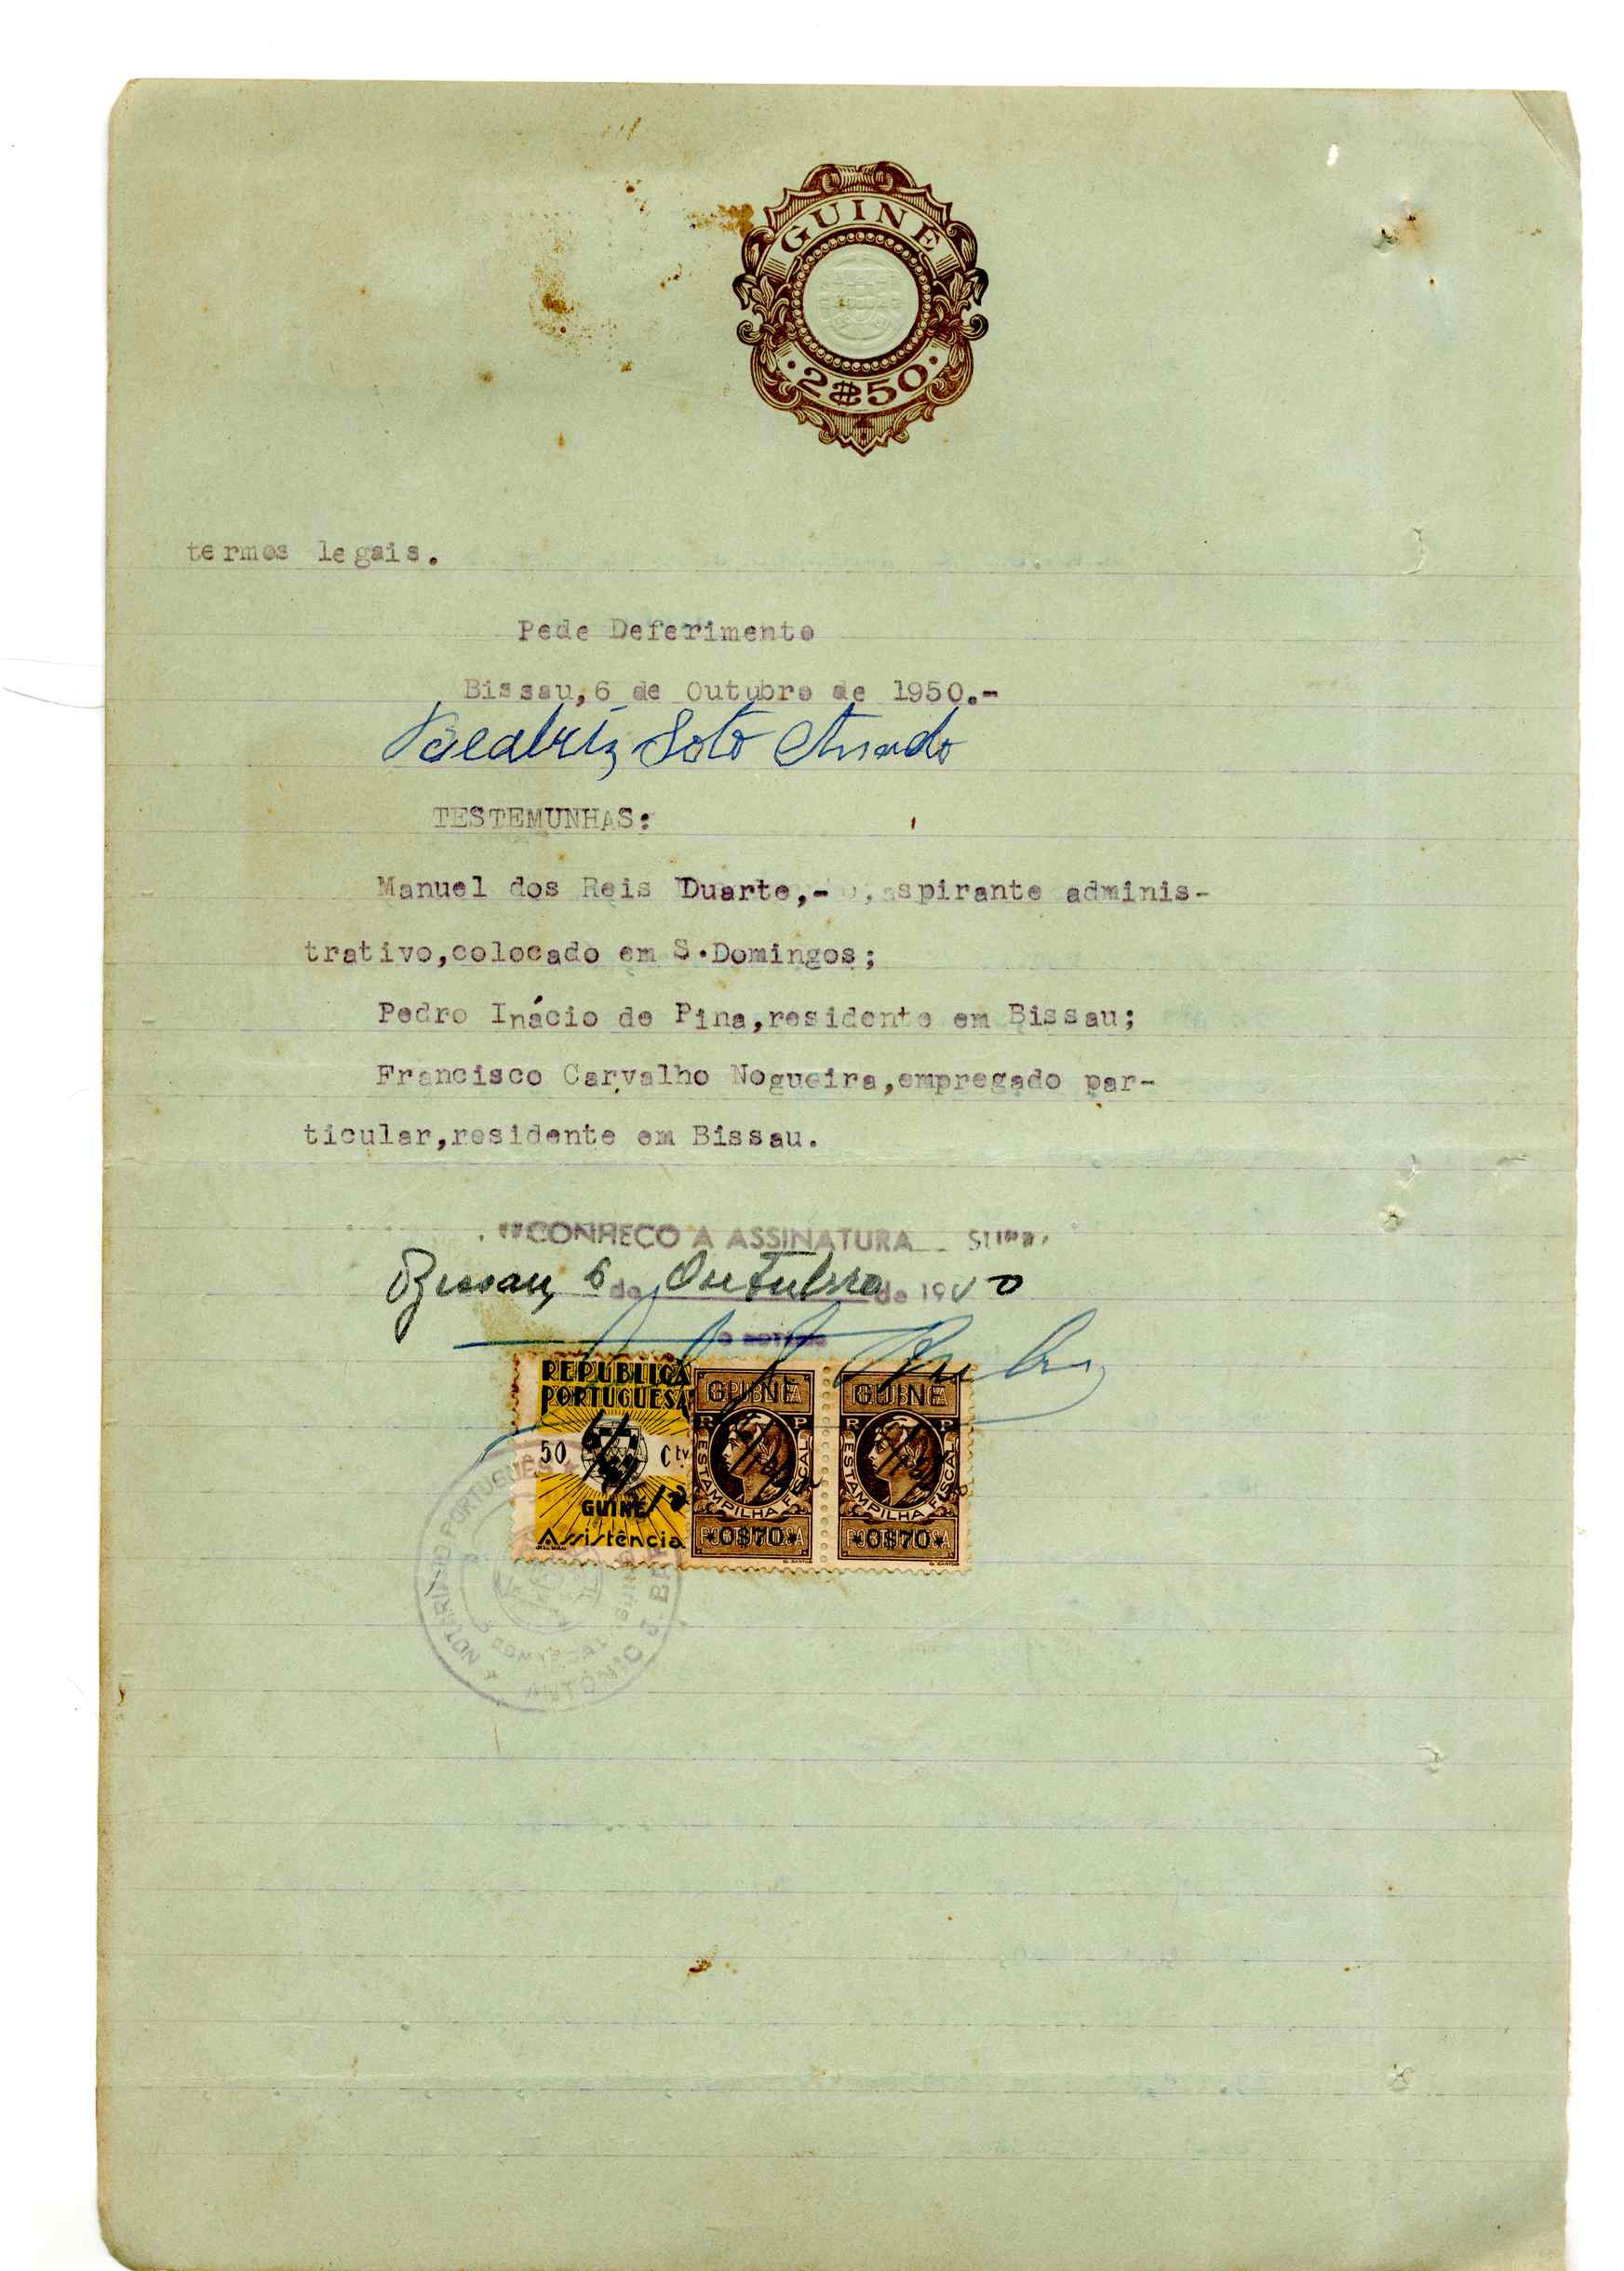 GUINE
·2$50·
termos legais.
Pede Deferimento
Bissau,6 de Outubro de 1950.-
Beatriz Soto Amado
TESTEMUNHAS:
Manuel dos Reis Duarte,- aspirante adminis-
trativo,colocado em S.Domingos;
Pedro Inácio de Pina,residente em Bissau;
Francisco Carvalho Nogueira,empregado par-
ticular,residente em Bissau.
RECONHEÇO A ASSINATURA SUPRA
Bissau, 6 de Outubro de 1950
O NOTÁRIO
REPÚBLICA
PORTUGUESA
50 Ctv.
GUINÉ
Assistência
GUINÉ
R P
ESTAMPILHA FISCAL
*0$70*
GUINÉ
R P
ESTAMPILHA FISCAL
*0$70*
NOTARIADO PORTUGUÊS
ANTÓNIO